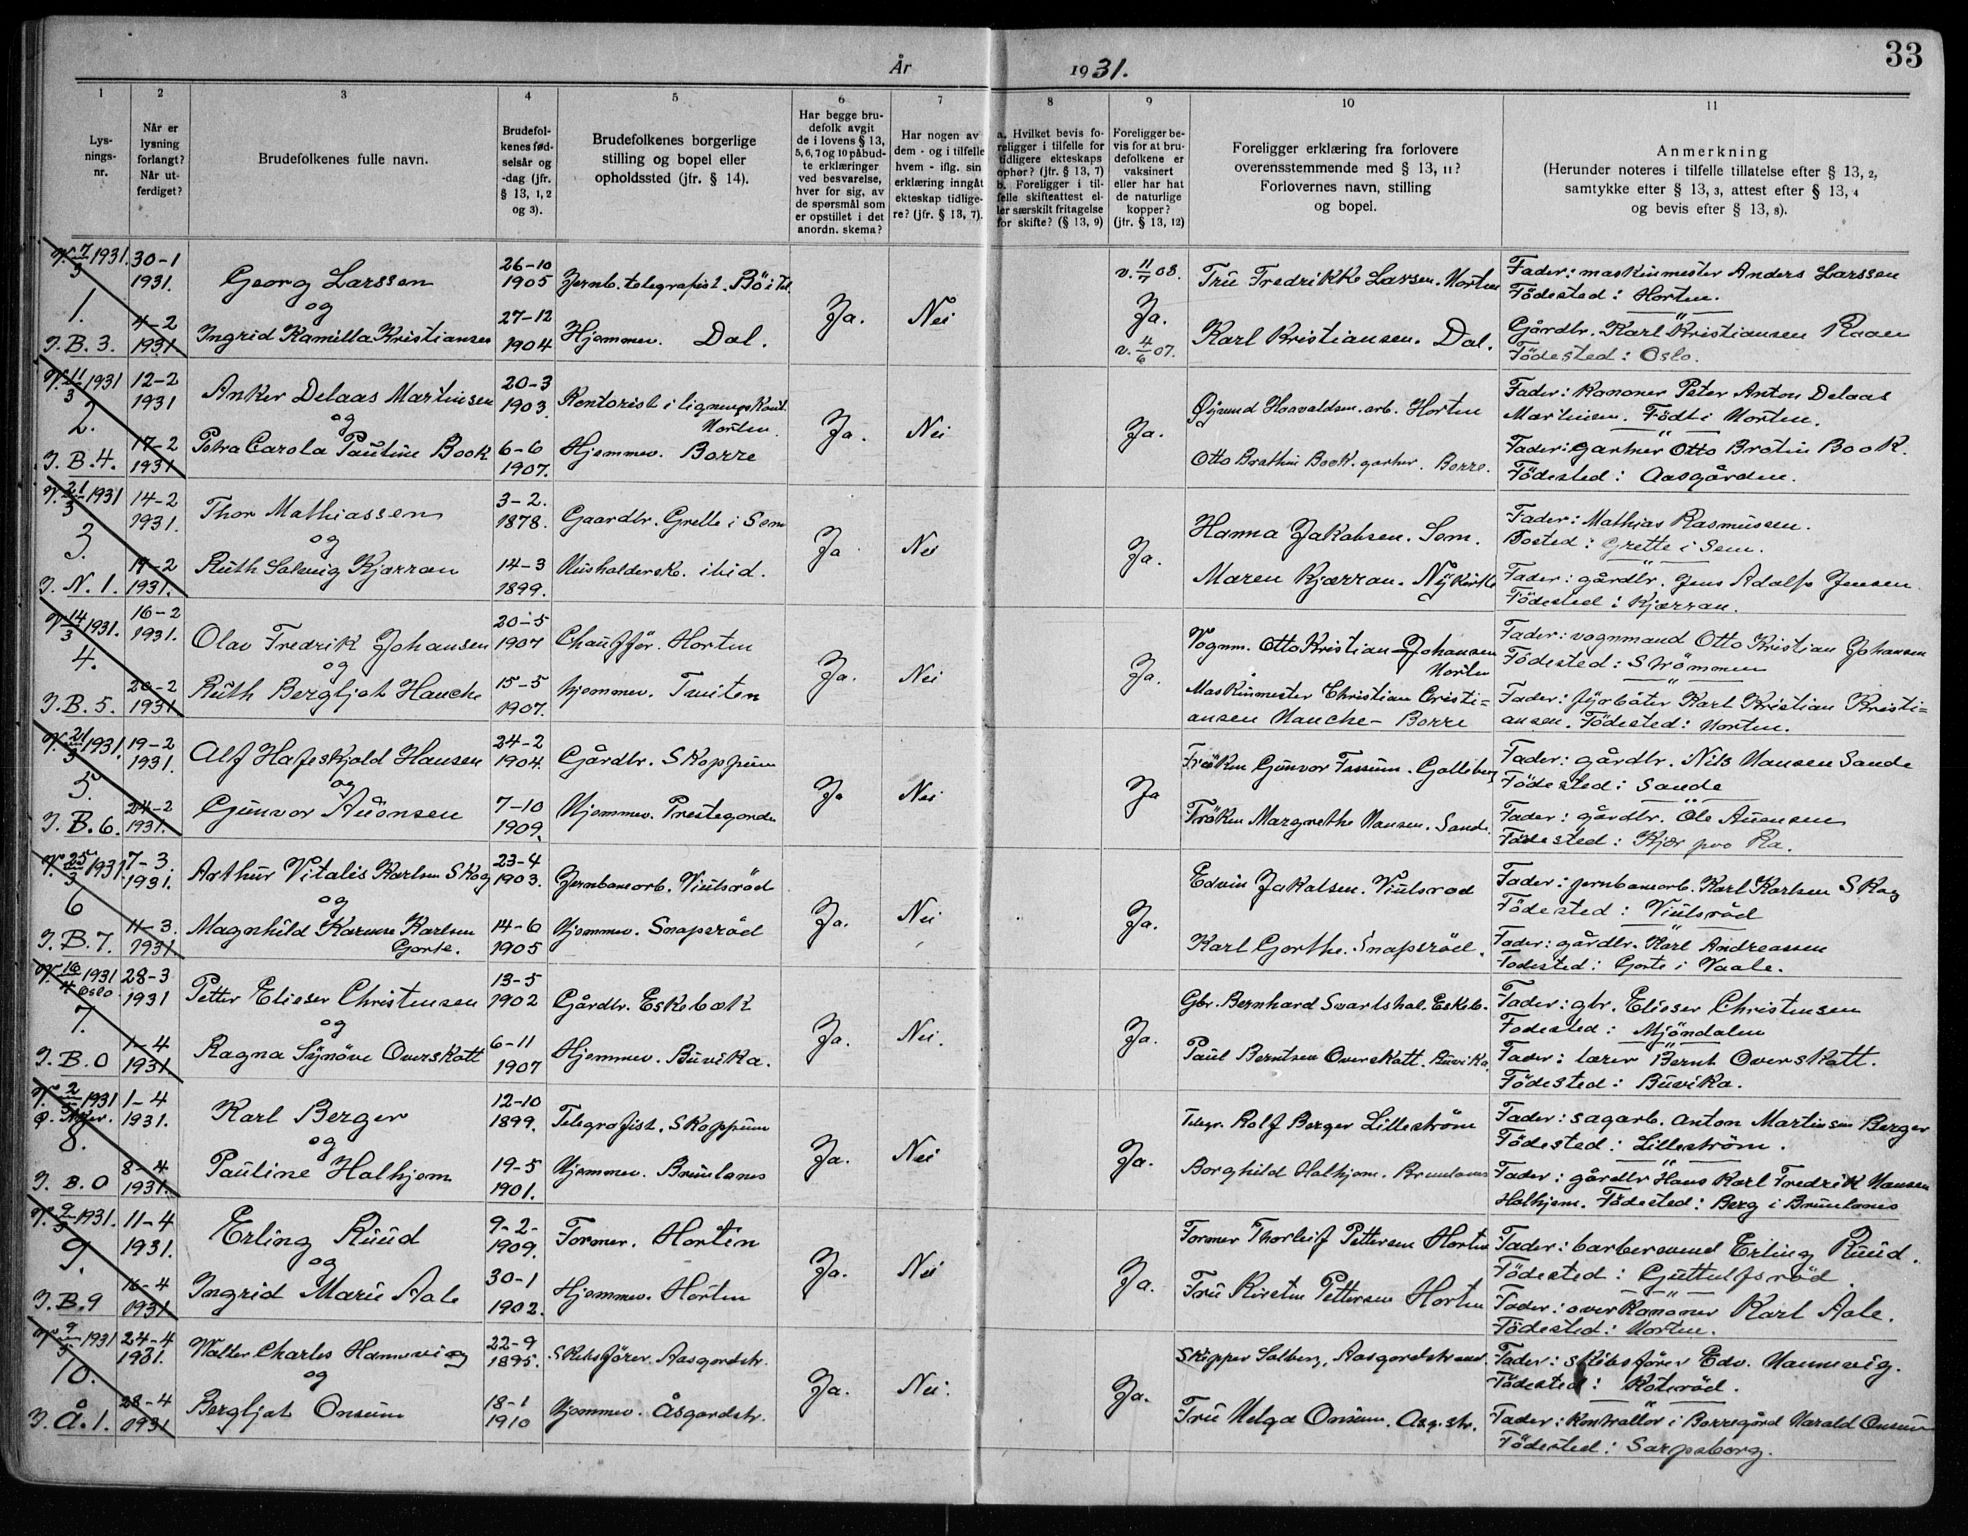 33
År 1931.
1
2
3
4
5
6
7
8
9
10
11
Lys-
nings-
nr.
Når er
lysning
forlangt?
Når ut-
ferdiget?
Brudefolkenes fulle navn.
Brudefol-
kenes fød-
selsår og
-dag (jfr.
§ 13, 1, 2
og 3).
Brudefolkenes borgerlige
stilling og bopel eller
opholdssted (jfr. § 14).
Har begge bru-
defolk avgit
de i lovens § 13,
5, 6, 7 og 10 påbud-
te erklæringer
ved besvarelse,
hver for sig, av
de spørsmål som
er opstillet i det
anordn. skema?
Har nogen av
dem - og i tilfelle
hvem - iflg. sin
erklæring inngått
ekteskap tidlige-
re? (jfr. § 13, 7).
a. Hvilket bevis fo-
religger i tilfelle for
tidligere ekteskaps
ophør? (jfr. § 13, 7)
b. Foreligger i til-
felle skifteattest el-
ler særskilt fritagelse
for skifte? (§ 13, 9)
Foreligger be-
vis for at bru-
defolkene er
vaksinert
eller har hat
de naturlige
kopper?
(jfr. § 13, 12)
Foreligger erklæring fra forlovere
overensstemmende med § 13, 11?
Forlovernes navn, stilling
og bopel.
Anmerkning
(Herunder noteres i tilfelle tillatelse efter § 13, 2,
samtykke efter § 13, 3, attest efter § 13, 4
og bevis efter § 13, 8).
V. 7/3 1931. 30-1 1931. Georg Larssen 26-10 1905 Jernb. telegrafist. Bö i Tel. v. 11/7 08. Fru Fredrikke Larsen. Horten Fader: maskinmester Anders Larssen
Födested: Horten.
1. og Ja. Nei Ja.
J.B. 3. 4-2 1931. Ingrid Kamilla Kristiansen 27-12 1904 Hjemmev. Dal. v. 4/6 07. Karl Kristiansen. Dal. Gårdbr. Karl Kristiansen Raaen
Födested: Oslo.
V. 11/3 1931 12-2 1931 Anker Delaas Martinsen 20-3 1903. Kontorist i ligningskont. Horten. Öyvind Haavaldsen. arb. Horten Fader: Kanoner Peter Anton Delaas
Martinsen. Födt i Horten.
2. og Ja. Nei Ja.
J.B. 4. 17-2 1931 Petra Carola Pauline Book 6-6 1907. Hjemmev. Borre Otto Brathin Book. gartner. Borre. Fader: Gartner Otto Bratin Book.
Födested: Aasgården.
V. 21/3 1931 14-2 1931. Thor Mathiassen 3-2. 1878. Gaardbr. Grette i Sem Hanna Jakobsen. Sem. Fader: Mathias Rasmussen.
Bosted: Grette i Sem.
3. og Ja Nei Ja.
J. N. 1. 1931. Ruth Solveig Kjærran 14-3 1899. Husholdersk. ibid. Maren Kjærran. Nykirke Fader: gårdbr. Jens Adolf Jensen
Födested: Kjærran.
V. 14/3 1931. 16-2 1931. Olav Fredrik Johansen 20-5 1907 Chauffør. Horten Vognm. Otto Kristian Johansen
Horten Fader: vognmand Otto Kristian Johansen
Födested: Strömmen
4. og Ja. Nei Ja.
J.B. 5. 20-2 1931 Ruth Bergljot Hauche 15-5 1907. hjemmev. Tveiten Maskinmester Christian Cristi=
ansen Hauche - Borre Fader: fyrböter Karl Kristian Kristi=
ansen. Födested: Horten.
V. 21/3 1931. 19-2 1931. Alf Hafeskjold Hansen 24-2 1904. Gårdbr. Skoppum Fröken Gunvor Fossum. Galleberg Fader: gårdbr. Nils Hansen Sande
Födested: Sande
5. og Ja Nei Ja
J.B. 6. 24-2 1931. Gunvor Auensen 7-10 1909. Hjemmev. Prestegorden Fröken Margrethe Hansen. Sande. Fader: gårdbr. Ole Auensen
Födested: Kjær paa Ra.
V. 25/3 1931. 7-3. 1931. Arthur Vitalis Karlsen Skog 23-4 1903. Jernbanearb. Viulsröd Edvin Jakobsen. Viulsröd Fader: jernbanearb. Karl Karlsen Skog
Födested: Viulsröd
6 og Ja. Nei Ja.
J.B. 7. 11-3. 1931 Magnhild Karense Karlsen
Gorte. 14-6 1905 Hjemmev. Snapsröd Karl Gorthe. Snapsröd. Fader: gårdbr. Karl Andreassen
Födested: Gorte i Vaale.
V. 16/4 1931 Oslo 28-3 1931 Petter Elieser Christensen 13-5 1902 Gårdbr. Eskebæk Gbr. Bernhard Svartshal. Eskeb. Fader: gbr. Elieser Christensen
Födested: Mjöndalen
7. og Ja. Nei. Ja.
J.B. 0 1-4 1931. Ragna Synöve Overskott 6-11 1907 Hjemmev. Buvika. Paul Berntsen Overskott. Buvika. Fader: lærer Bernt Overskatt.
Födested: Buvika.
V. 2/5 1931 1-4 1931. Karl Berger 12-10 1899. Telegrafist. Skoppum Telegr. Rolf Berger Lilleström Fader: sagarb. Anton Martinsen Berger
Födested: Lilleström.
8. og Ja. Nei Ja.
J. B. 0 8-4 1931. Pauline Halhjem 19-5 1901. Hjemmev. Brunlanes Borghild Halhjem. Brunlanes Fader: gårdbr Hans Karl Fredrik Hansen
Halhjem. Födested: Berg i Brunlanes
V. 9/5 1931. 11-4 1931. Erling Ruud 9-2- 1909. Former. Horten Former Thorleif Pettersen Horten Fader: barbersvend Erling Ruud.
Födested: Guttulfsröd.
9. og Ja. Nei Ja.
J.B. 9 16-4 1931 Ingrid Marie Aale 30-1 1902. Hjemmev. Horten Fru Kirsten Pettersen Horten Fader: overkanoner Karl Aale.
Födested: Horten.
V. 9/5 1931 24-4 1931. Walter Charles Hannevig 22-9 1895. Skibsförer. Aasgordstr. Skipper Solberg, Aasgordstrand. Fader: skibsförer Edv. Hannevig.
Födested: Roteröd.
10. og Ja. Nei. Ja.
J. Å. 1. 28-4 1931 Bergljot Onsum 18-1 1910 Hjemmev. Åsgordstr. Fru Helga Onsum. Asg.str. Fader: Kontrollör i Borregård Harald Onsum
Födested: Sarpsborg.